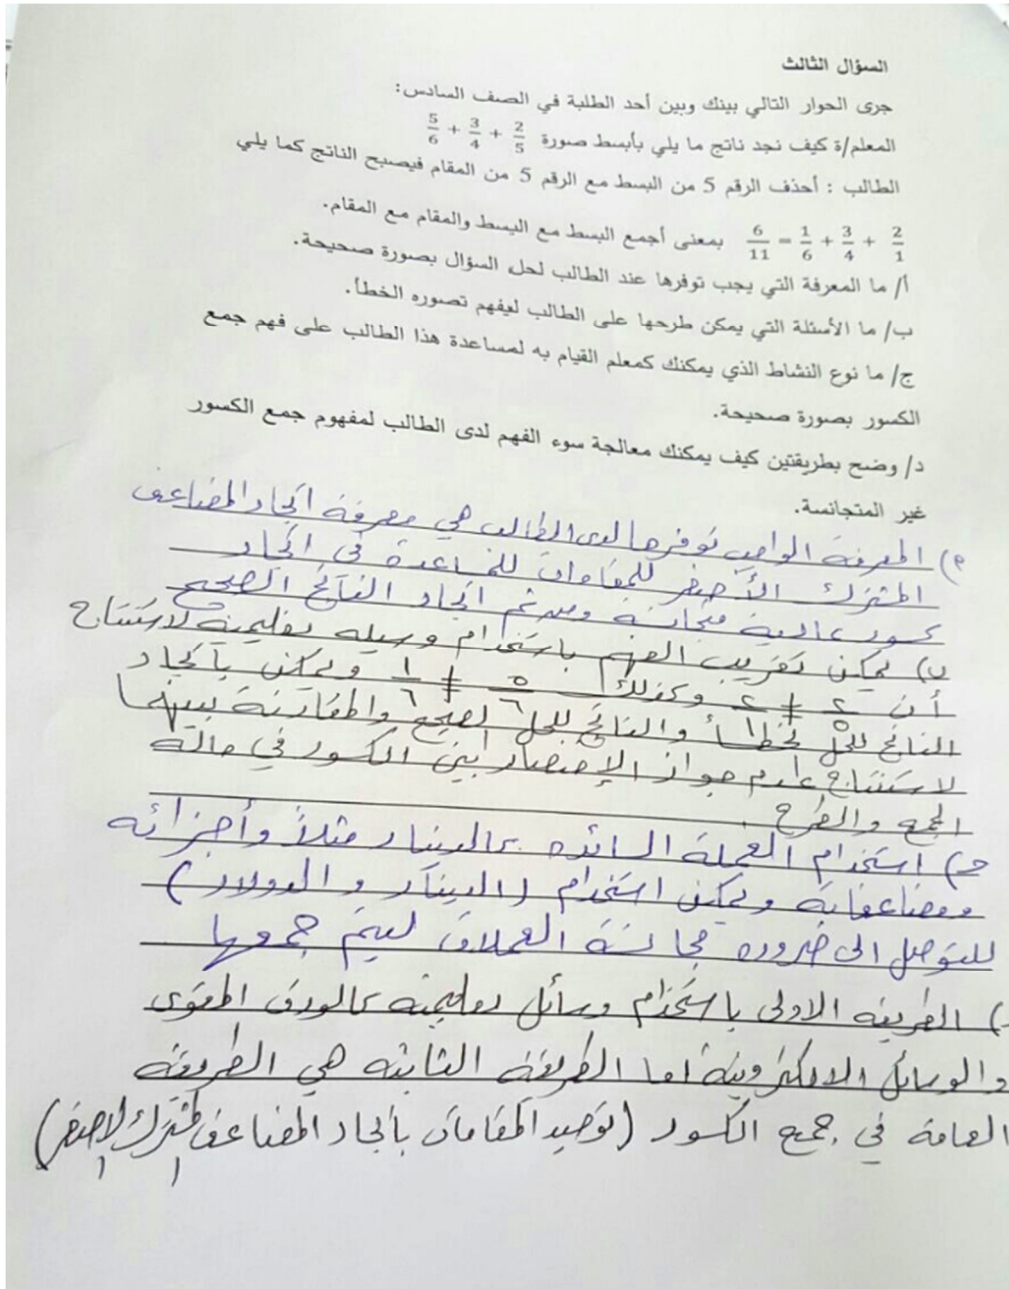 السؤال الثالث
جرى الحوار التالي بينك وبين أحد الطلبة في الصف السادس:
المعلم/ة كيف نجد ناتج ما يلي بأبسط صورة 2/5 + 3/4 + 5/6
الطالب : أحذف الرقم 5 من البسط مع الرقم 5 من المقام فيصبح الناتج كما يلي
2/1 + 3/4 + 1/6 = 6/11 بمعنى أجمع البسط مع البسط والمقام مع المقام.
أ/ ما المعرفة التي يجب توفرها عند الطالب لحل السؤال بصورة صحيحة.
ب/ ما الأسئلة التي يمكن طرحها على الطالب ليفهم تصوره الخطأ.
ج/ ما نوع النشاط الذي يمكنك كمعلم القيام به لمساعدة هذا الطالب على فهم جمع
الكسور بصورة صحيحة.
د/ وضح بطريقتين كيف يمكنك معالجة سوء الفهم لدى الطالب لمفهوم جمع الكسور
غير المتجانسة.
م) المعرفة الواجب توفرها لدى الطالب هي معرفة ايجاد المضاعف
المشترك الأصغر للمقامات للمساعدة في ايجاد
كسور عادية متجانسة ومن ثم ايجاد الناتج الصحيح
ب) يمكن تقريب الفهم باستخدام وسيله تعليمية لاستنتاج
أن ٢/٥ ≠ ٢/١ وكذلك ٥/٦ ≠ ١/٦ ويمكن بايجاد
الناتج للحل بخطأ والناتج للحل لصحيح والمقارنة بينهما
لاستنتاج عدم جواز الإختصار بين الكسور في حالة
الجمع والطرح .
ج) استخدام العملة السائده كالدينار مثلاً وأجزائه
ومضاعفاته ويمكن استخدام (الدينار و الدولار)
للتوصل الى ضروره مجانسة العملات ليتم جمعها
د) الطريقه الاولى باستخدام وسائل تعليمية كالورق المقوى
والوسائل الالكترونية اما الطريقة الثانية هي الطريقة
العامة في جمع الكسور (توحيد المقامات بايجاد المضاعف المشترك الاصغر)